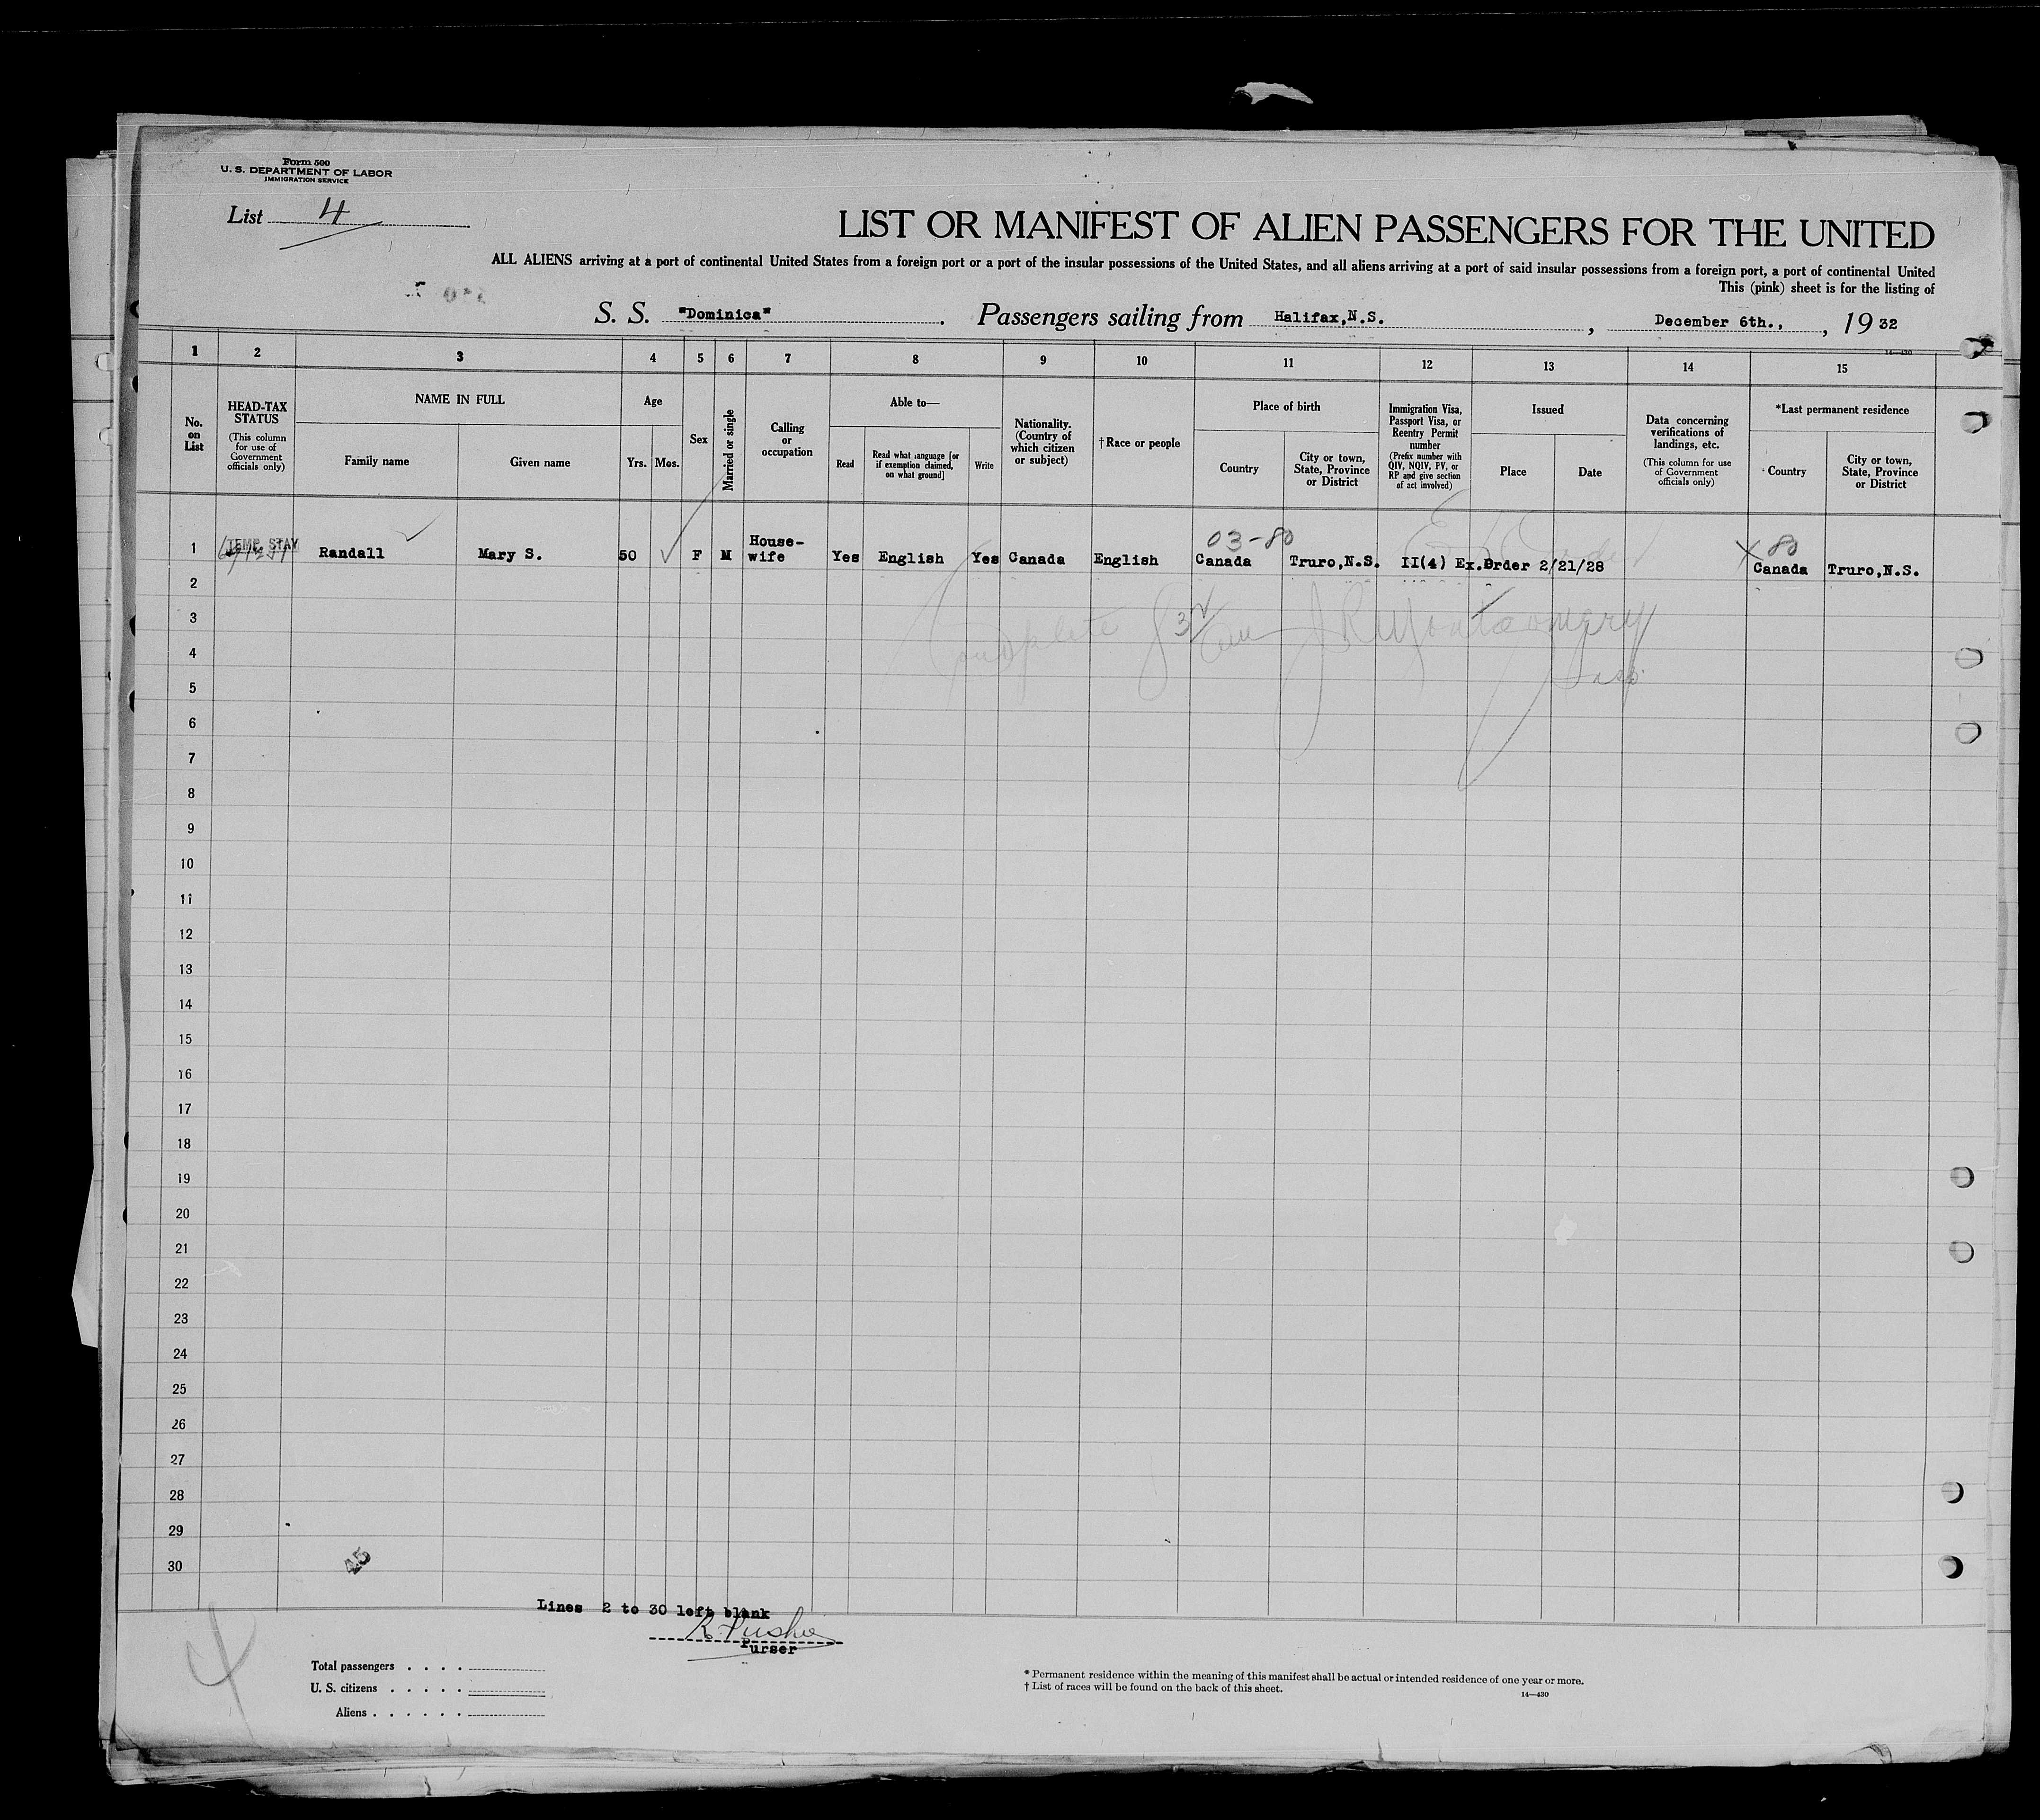 Form 500
U. S. DEPARTMENT OF LABOR
IMMIGRATION SERVICE
List 4
LIST OR MANIFEST OF ALIEN PASSENGERS FOR THE UNITED
ALL ALIENS arriving at a port of continental United States from a foreign port or a port of the insular possessions of the United States, and all aliens arriving at a port of said insular possessions from a foreign port, a port of continental United
This (pink) sheet is for the listing of
S. S. "Dominica". Passengers sailing from Halifax,N.S. , December 6th., , 19 32
14—430
1 2 3 4 5 6 7 8 9 10 11 12 13 14 15
No. on List
HEAD-TAX STATUS
(This column for use of Government officials only)
NAME IN FULL
Family name
Given name
Age
Yrs. Mos.
Sex
Married or single
Calling or occupation
Able to—
Read
Read what language [or if exemption claimed, on what ground]
Write
Nationality. (Country of which citizen or subject)
†Race or people
Place of birth
Country
City or town, State, Province or District
Immigration Visa, Passport Visa, or Reentry Permit number
(Prefix number with QIV, NQIV, PV, or RP and give section of act involved)
Issued
Place
Date
Data concerning verifications of landings, etc.
(This column for use of Government officials only)
*Last permanent residence
Country
City or town, State, Province or District
03-80
X 80
1 TEMP. STAY Randall Mary S. 50 F M House-wife Yes English Yes Canada English Canada Truro,N.S. II(4) Ex.Order 2/21/28 Canada Truro,N.S.
2
3
4
5
6
7
8
9
10
11
12
13
14
15
16
17
18
19
20
21
22
23
24
25
26
27
28
29
30
45
Lines 2 to 30 left blank
Purser
4
Total passengers . . . .
U. S. citizens . . . . .
Aliens . . . . . .
* Permanent residence within the meaning of this manifest shall be actual or intended residence of one year or more.
† List of races will be found on the back of this sheet.
14—430